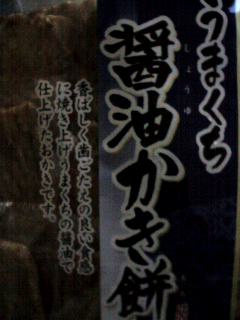 うまくち
醤油かき餅
しょうゆ
香ばしく歯ごたえの良い食感
に焼き上げうまくちの醤油で
仕上げたおかきです。